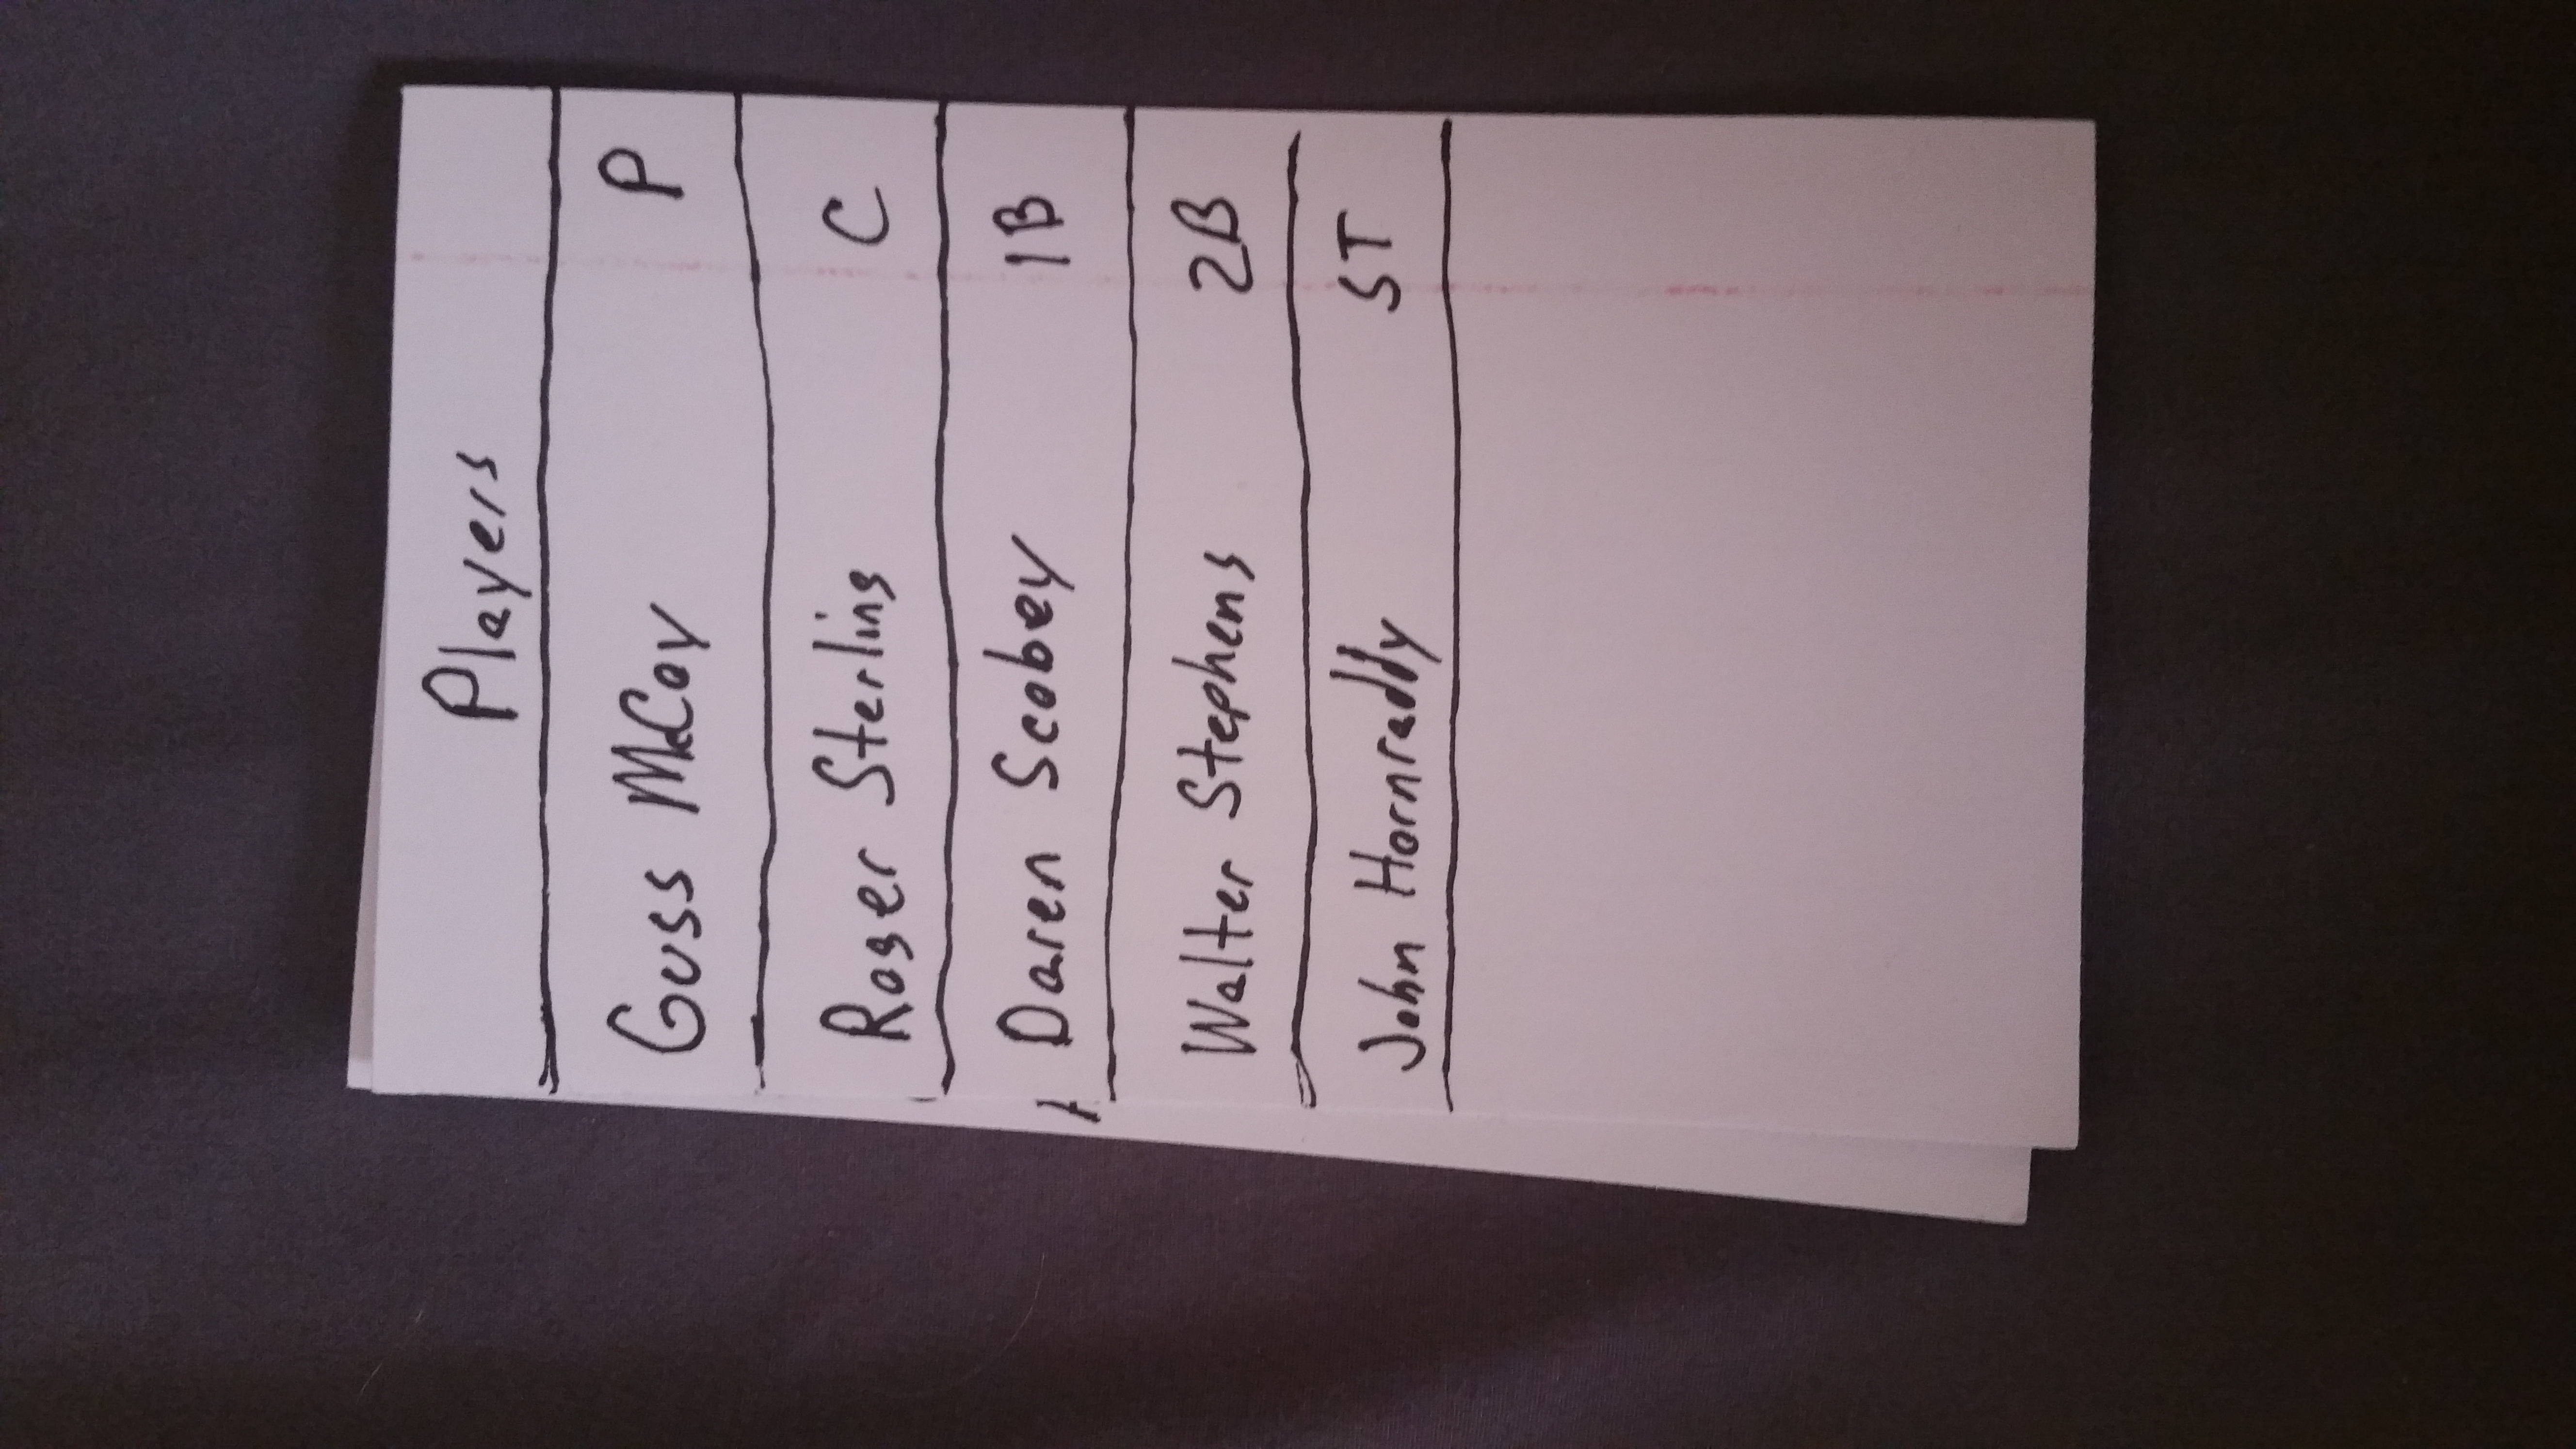 Players
Guss McCoy P
Roger Sterling C
Daren Scobey 1B
Walter Stephens 2B
John Hornraddy ST